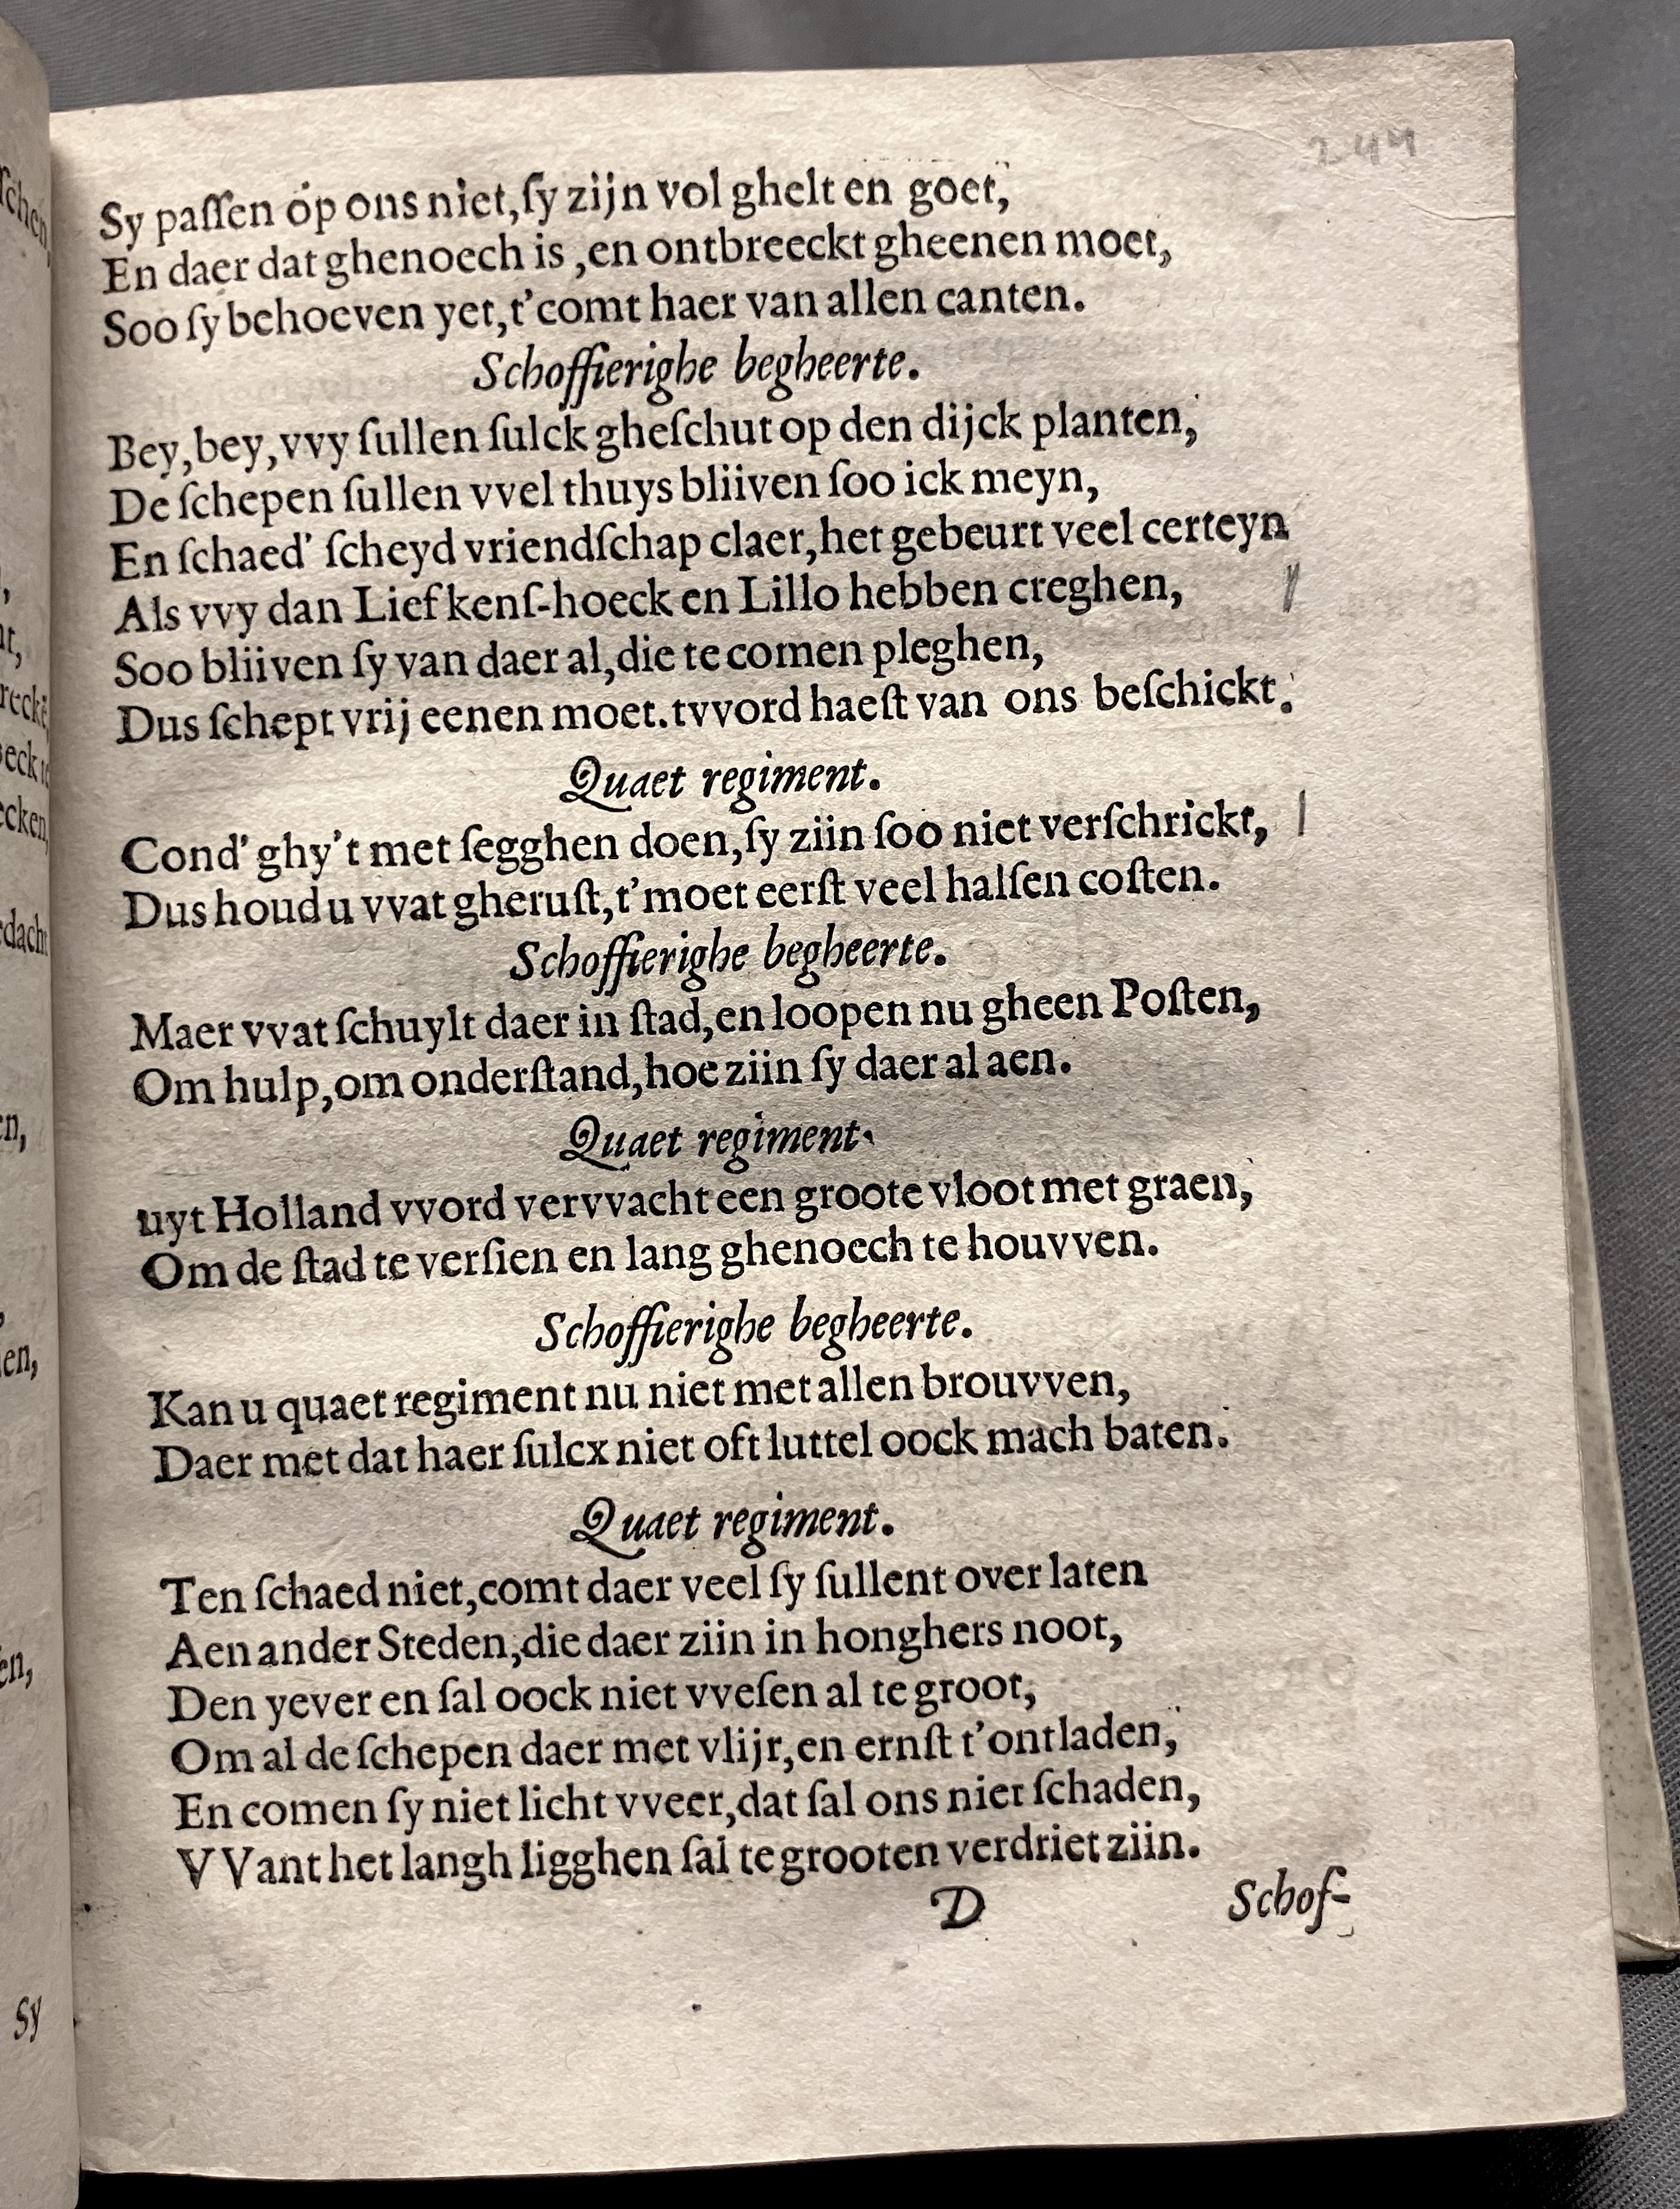 244
Sy paſſen op ons niet,ſy zijn vol ghelt en goet,
En daer dat ghenoech is ,en ontbreeckt gheenen moet,
Soo ſy behoeven yet,t’comt haer van allen canten.
Schoffierighe begheerte.
Bey,bey,vvy ſullen ſulck gheſchut op den dijck planten,
De ſchepen ſullen vvel thuys bliiven ſoo ick meyn,
En ſchaed’ ſcheyd vriendſchap claer,het gebeurt veel certeyn
Als vvy dan Liefkenſ-hoeck en Lillo hebben creghen,
Soo bliiven ſy van daer al,die te comen pleghen,
Dus ſchept vrij eenen moet.tvvord haeſt van ons beſchickt.
Quaet regiment.
Cond’ ghy’t met ſegghen doen,ſy ziin ſoo niet verſchrickt,
Dus houd u vvat gheruſt,t’moet eerſt veel halſen coſten.
Schoffierighe begheerte.
Maer vvat ſchuylt daer in ſtad,en loopen nu gheen Poſten,
Om hulp,om onderſtand,hoe ziin ſy daer al aen.
Quaet regiment.
uyt Holland vvord vervvacht een groote vloot met graen,
Om de ſtad te verſien en lang ghenoech te houvven.
Schoffierighe begheerte.
Kan u quaet regiment nu niet met allen brouvven,
Daer met dat haer ſulcx niet oft luttel oock mach baten.
Quaet regiment.
Ten ſchaed niet,comt daer veel ſy ſullent over laten
Aen ander Steden,die daer ziin in honghers noot,
Den yever en ſal oock niet vveſen al te groot,
Om al de ſchepen daer met vlijt,en ernſt t’ontladen,
En comen ſy niet licht vveer,dat ſal ons niet ſchaden,
VVant het langh ligghen ſal te grooten verdriet ziin.
D Schof-
Sy